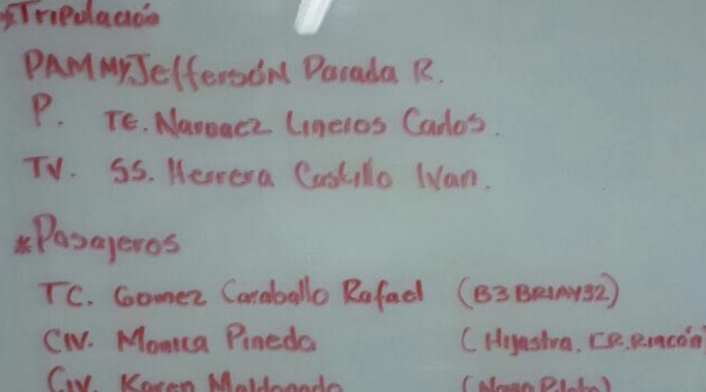 *Tripulación
PAM MY Jefferson Parada R.
P. TE. Narvaez Lineros Carlos.
TV. SS. Herrera Castillo Ivan.
*Pasajeros
TC. Gomez Caraballo Rafael (B3 BRIAV32)
CIV. Monica Pineda (Hijastra. CR. Rincón)
CIV. Karen Maldonado